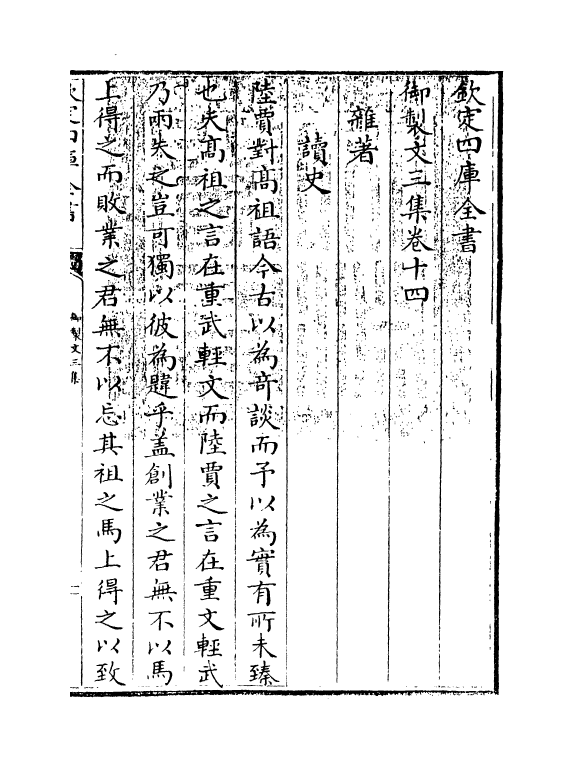 欽定四庫全書
御製文三集卷十四
雜著
讀史
陸賈對髙祖語今古以為竒談而予以為實有所未臻
也夫髙祖之言在重武輕文而陸賈之言在重文輕武
乃兩失之豈可獨以彼為韙乎盖創業之君無不以馬
上得之而敗業之君無不以忘其祖之馬上得之以致
欽定四庫全書
御製文三集
一